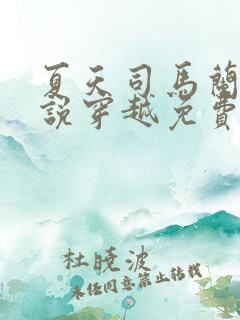 夏天司马蔺
说穿越免费
杜晓波
未经同意禁止转载